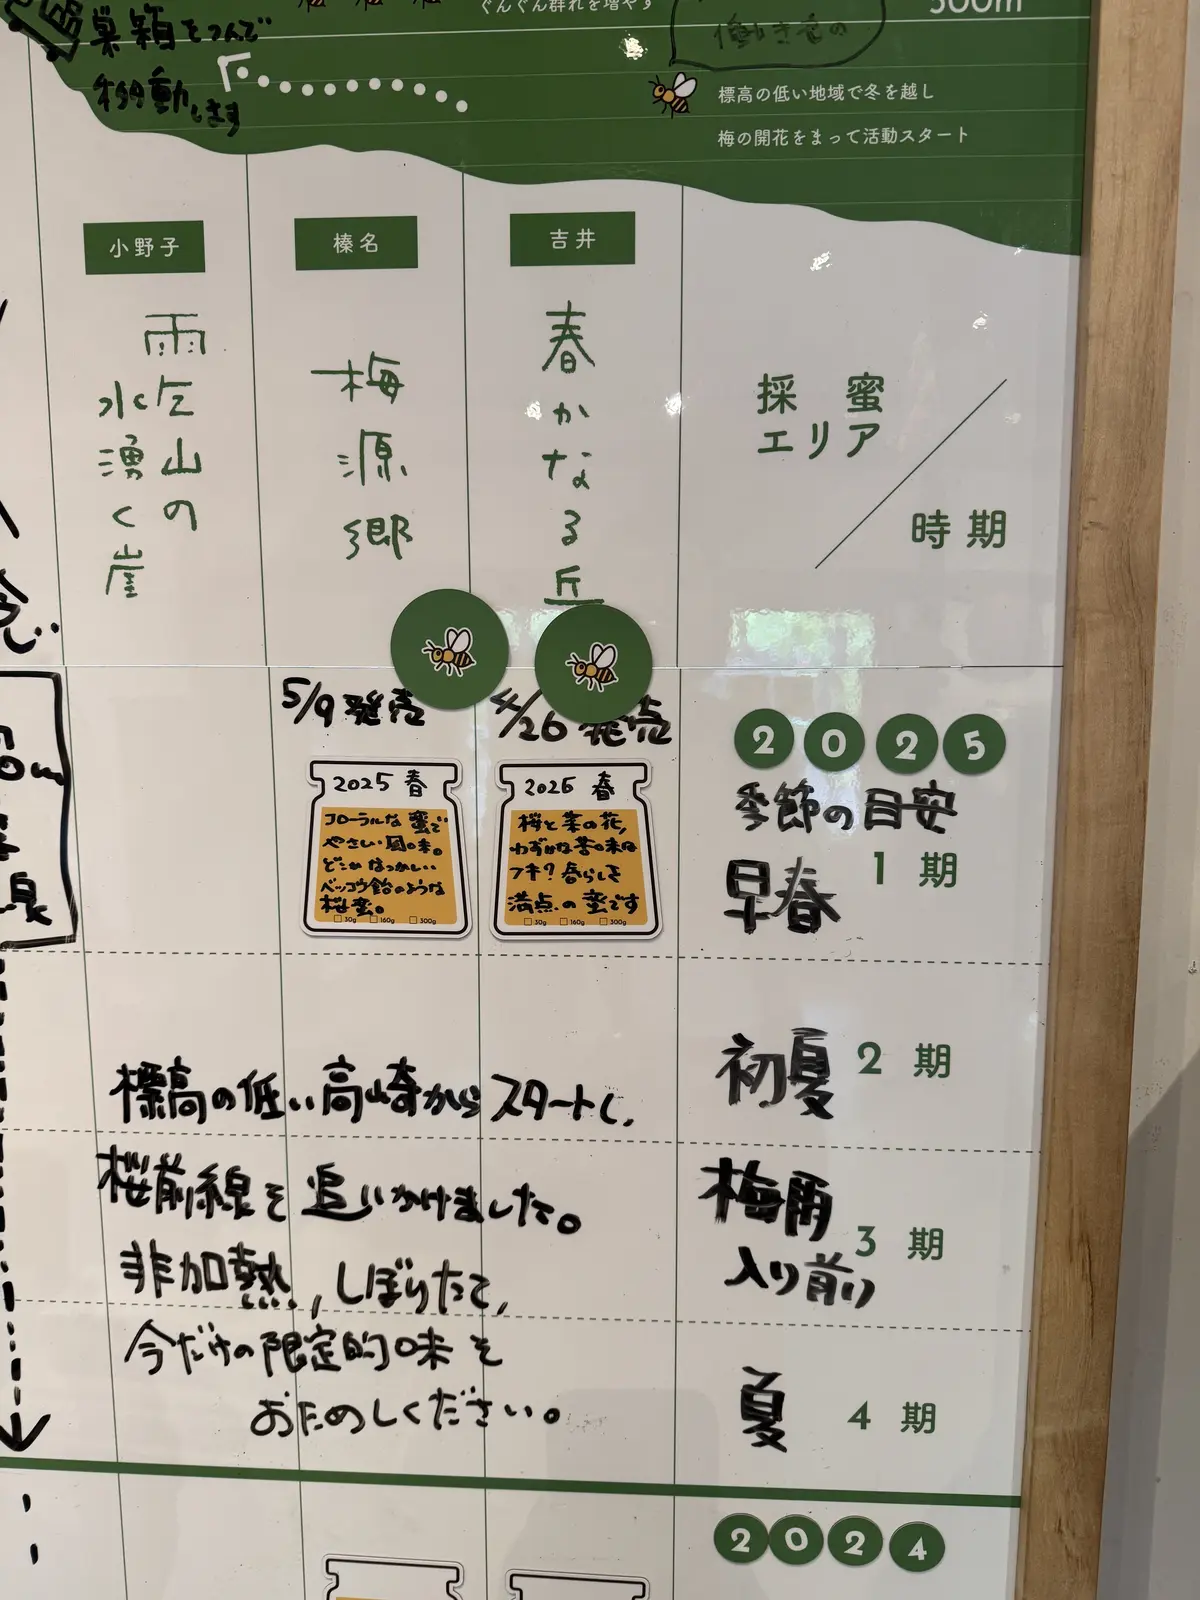 巣箱をつんで
移動します
ぐんぐん群れを増やす
500m
働き者の
標高の低い地域で冬を越し
梅の開花をまって活動スタート
採蜜
エリア
時期
吉井
春かなる丘
榛名
梅源郷
小野子
雨乞山の
水湧く崖
2025
季節の目安
早春
1期
4/26 発売
2025 春
桜と菜の花、
わずかな苦味は
フキ?春らしさ
満点の蜜です
30g 160g 300g
5/9 発売
2025 春
フローラルな蜜で
やさしい風味。
どこかなつかしい
ベッコウ飴のような
桜蜜。
30g 160g 300g
初夏
2期
梅雨
入り前
3期
夏
4期
標高の低い高崎からスタートし、
桜前線を追いかけました。
非加熱、しぼりたて、
今だけの限定的味を
おたのしください。
2024